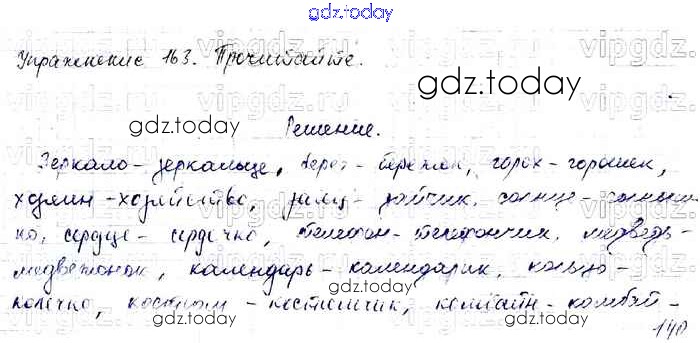 gdz.today
Упражнение 163. Прочитайте.
gdz.today
gdz.today
Решение.
Зеркало - зеркальце, берег - бережок, горох - горошек,
хозяин - хозяйство, заяц - зайчик, солнце - солныш
ко, сердце - сердечко, телефон - телефончик, медведь -
медвежонок, календарь - календарик, кольцо -
колечко, костюм - костюмчик, комбайн - комбай -
gdz.today
gdz.today
140